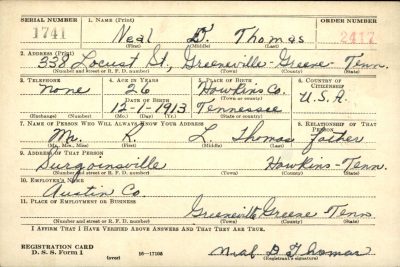 SERIAL NUMBER 1. NAME (Print) ORDER NUMBER
1741 Neal D. Thomas 2417
(First) (Middle) (Last)
2. ADDRESS (Print)
338 Locust St., Greeneville-Greene-Tenn.
(Number and street or R. F. D. number) (Town) (County) (State)
3. TELEPHONE 4. AGE IN YEARS 5. PLACE OF BIRTH 6. COUNTRY OF CITIZENSHIP
None 26 Hawkins Co.
DATE OF BIRTH (Town or county) U.S.A.
12-1-1913 Tennessee
(Exchange) (Number) (Mo.) (Day) (Yr.) (State or country)
7. NAME OF PERSON WHO WILL ALWAYS KNOW YOUR ADDRESS 8. RELATIONSHIP OF THAT PERSON
Mr. R. L. Thomas father
(Mr., Mrs., Miss) (First) (Middle) (Last)
9. ADDRESS OF THAT PERSON
Surgoinsville Hawkins-Tenn.
(Number and street or R. F. D. number) (Town) (County) (State)
10. EMPLOYER'S NAME
Austin Co.
11. PLACE OF EMPLOYMENT OR BUSINESS
Greeneville Greene Tenn
(Number and street or R. F. D. number) (Town) (County) (State)
I AFFIRM THAT I HAVE VERIFIED ABOVE ANSWERS AND THAT THEY ARE TRUE.
REGISTRATION CARD
D. S. S. Form 1 (over) 16-17105 Neal D Thomas
(Registrant's signature)